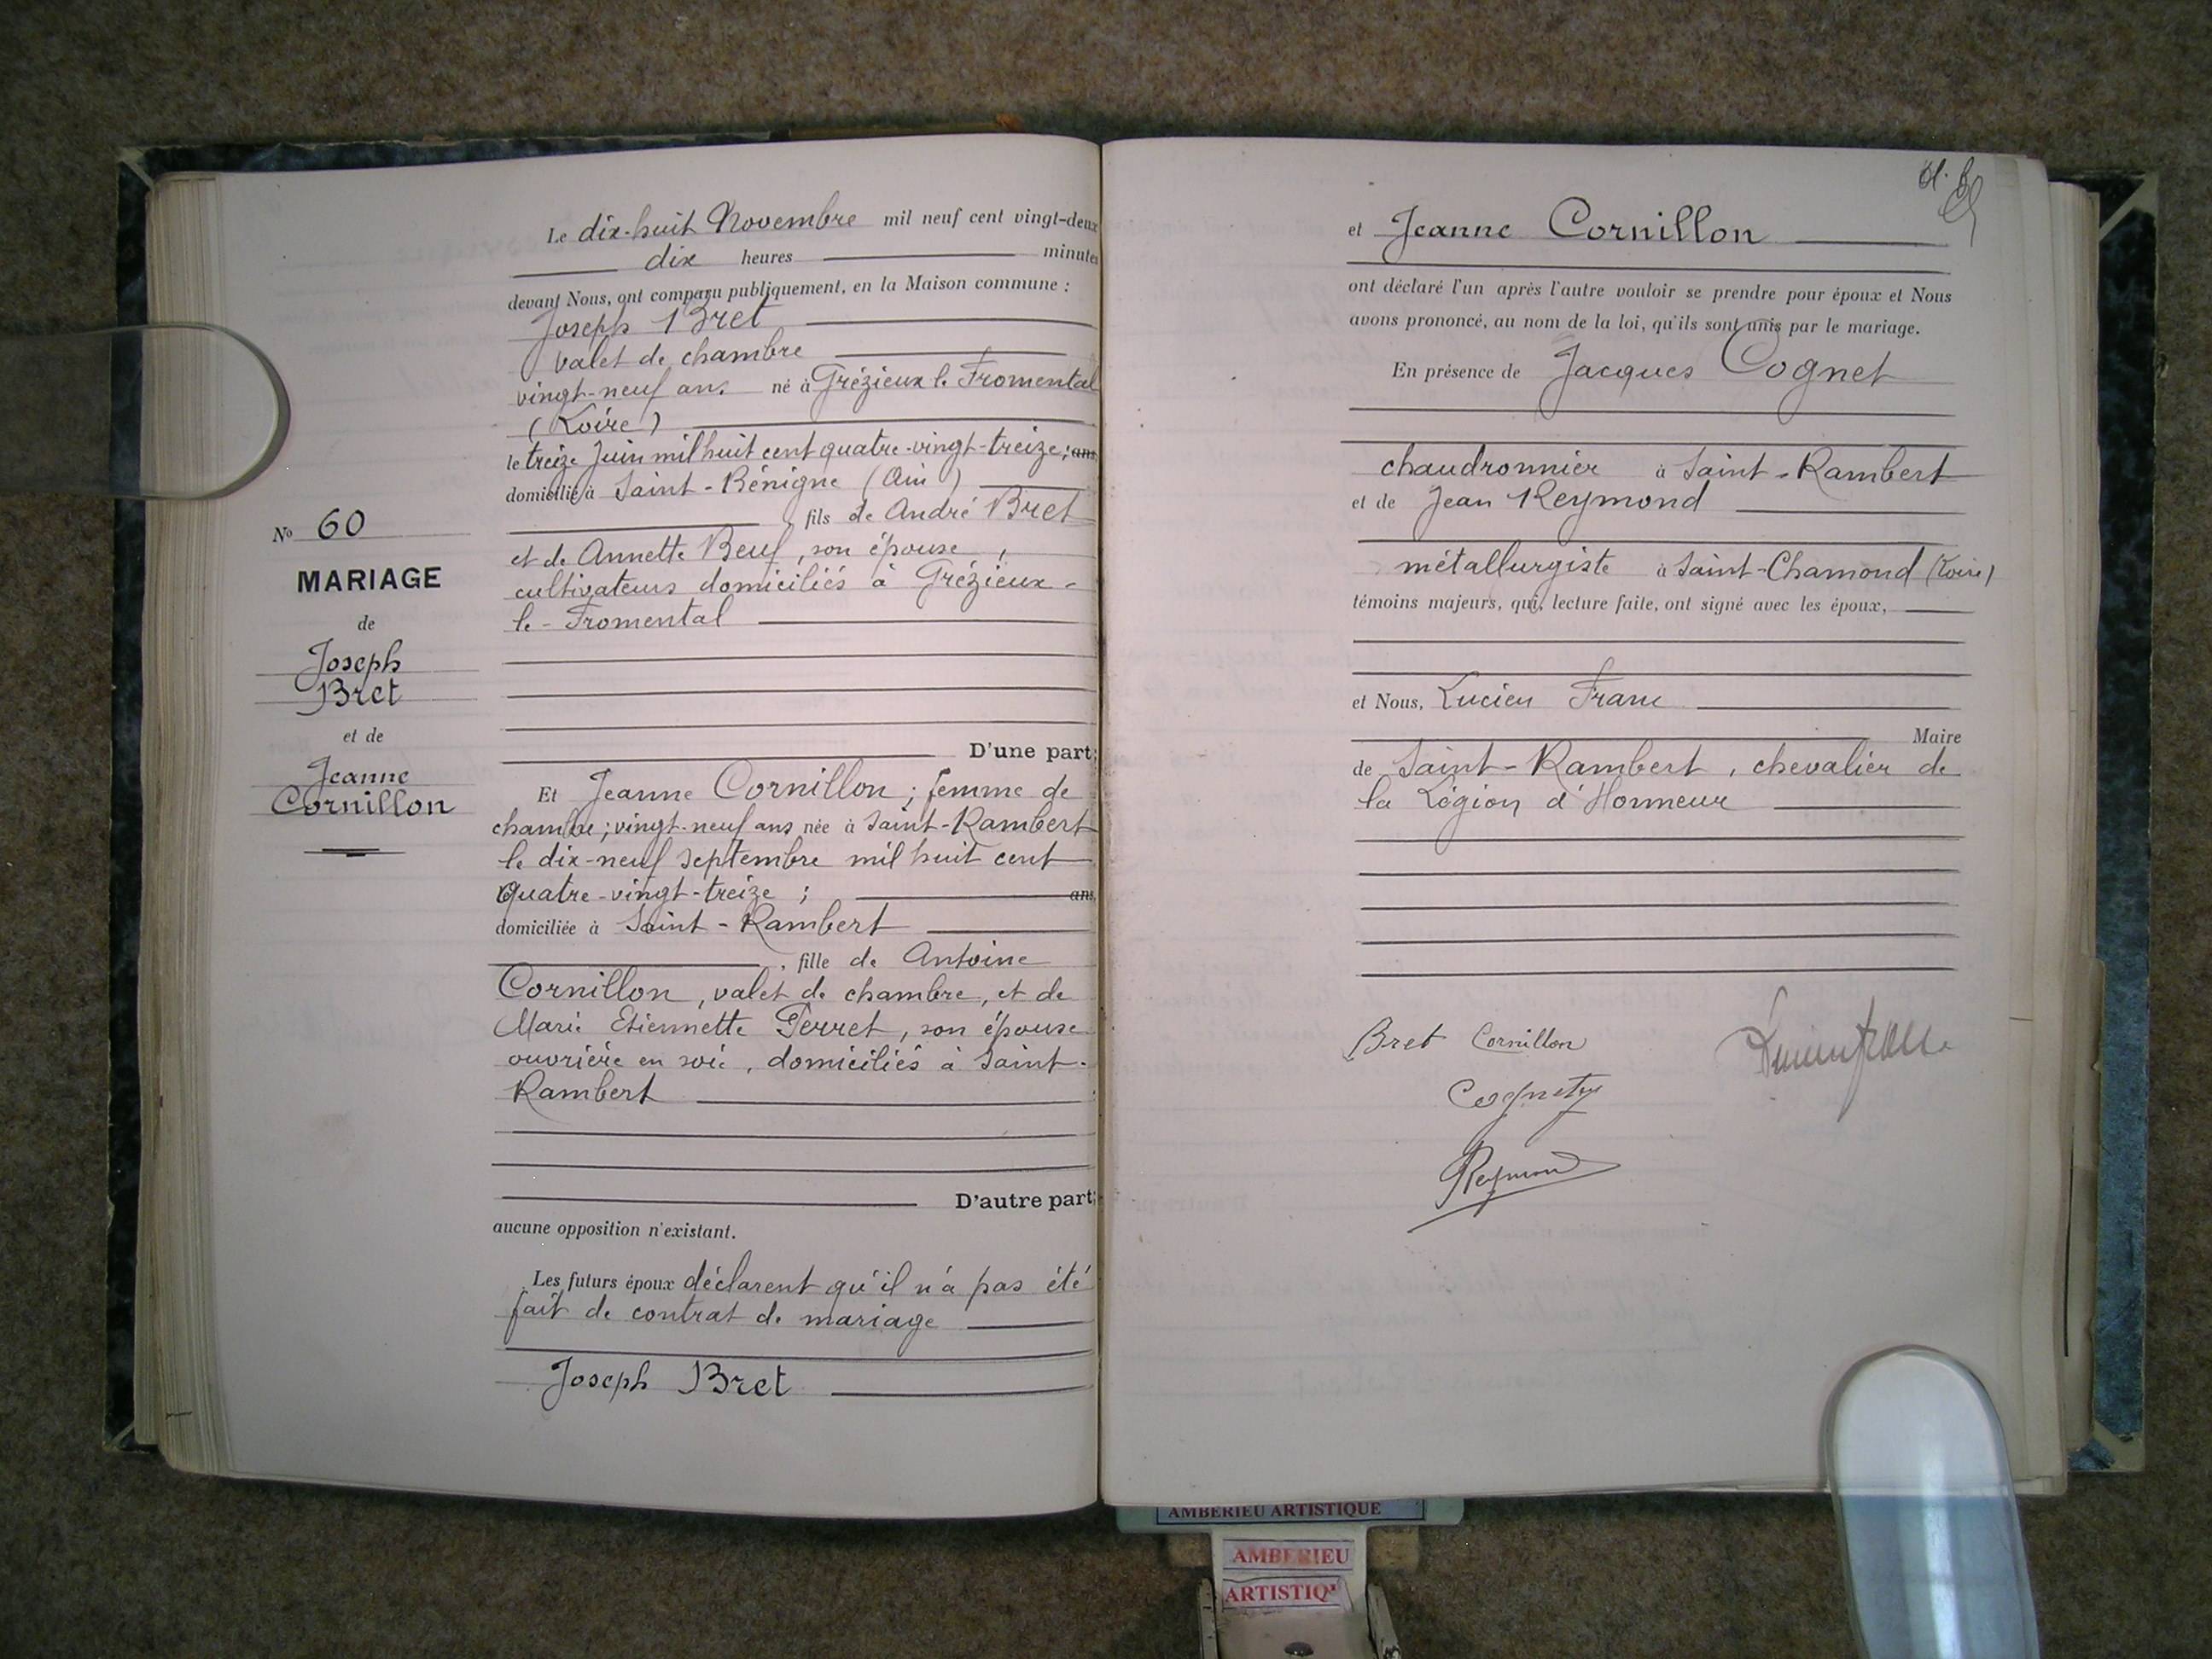 Le dix-huit Novembre mil neuf cent vingt-deux
dix heures minutes
devant Nous, ont comparu publiquement, en la Maison commune :
Joseph Bret
valet de chambre
vingt-neuf ans né à Grézieux le Fromental
(Loire)
le treize Juin mil huit cent quatre-vingt-treize ; ans
domicilié à Saint-Bénigne (Ain)
, fils de André Bret
et de Annette Beuf, son épouse,
cultivateurs domiciliés à Grézieux-
le-Fromental
No 60
MARIAGE
de
Joseph
Bret
et de
Jeanne
Cornillon
D'une part;
Et Jeanne Cornillon ; femme de
chambre ; vingt-neuf ans née à Saint-Rambert
le dix-neuf septembre mil huit cent
quatre-vingt-treize ; ans
domiciliée à Saint-Rambert
, fille de Antoine
Cornillon, valet de chambre, et de
Marie Etiennette Perret, son épouse
ouvrière en soie, domiciliés à Saint-
Rambert
D'autre part;
aucune opposition n'existant.
Les futurs époux déclarent qu'il n'a pas été
fait de contrat de mariage
Joseph Bret
et Jeanne Cornillon
ont déclaré l'un après l'autre vouloir se prendre pour époux et Nous
avons prononcé, au nom de la loi, qu'ils sont unis par le mariage.
En présence de Jacques Cognet
chaudronnier à Saint-Rambert
et de Jean Reymond
métallurgiste à Saint-Chamond (Loire)
témoins majeurs, qui, lecture faite, ont signé avec les époux,
et Nous, Lucien Franc
Maire
de Saint-Rambert, chevalier de
la Légion d'Honneur
Bret Cornillon
Cognet
Reymond
AMBERIEU ARTISTIQUE
AMBERIEU
ARTISTIQ